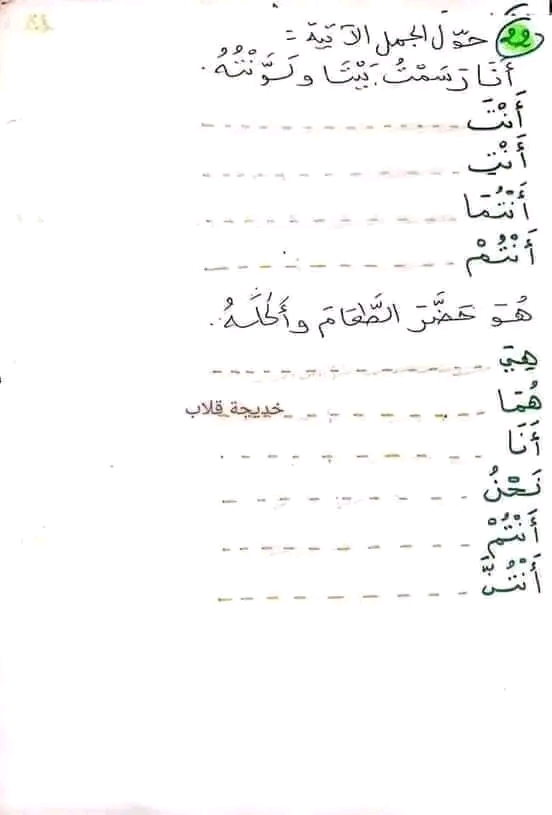 22 حَوِّلِ الجمل الآتِيَةَ =
أَنَا رَسَمْتُ بَيْتًا وَلَوَّنْتُهُ.
أَنْتَ
أَنْتِ
أَنْتُمَا
أَنْتُمْ
هُوَ حَضَّرَ الطَّعَامَ وأَكَلَهُ.
هِيَ
هُمَا
خديجة قلاب
أَنَا
نَحْنُ
أَنْتُمْ
أَنْتُنَّ